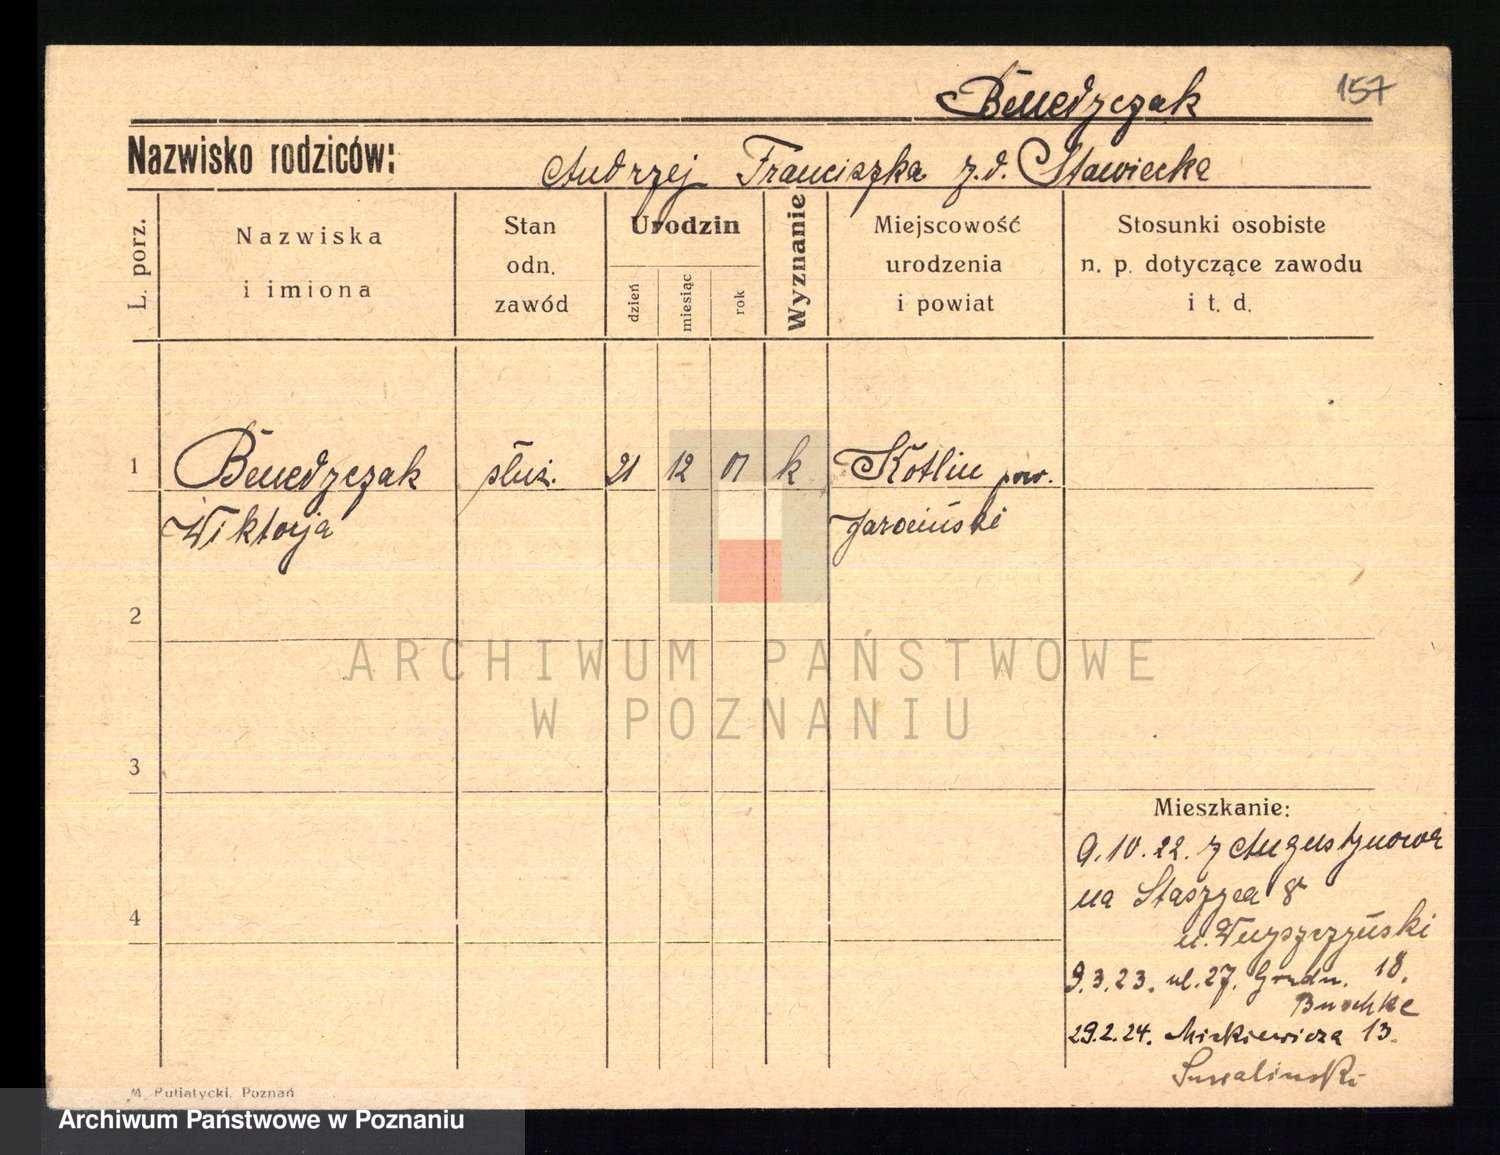 Benedyczak 157
Nazwisko rodziców:
Andrzej Franciszka z.d. Stawiecka
L. porz.
Nazwiska
i imiona
Stan
odn.
zawód
Urodzin
dzień
miesiąc
rok
Wyznanie
Miejscowość
urodzenia
i powiat
Stosunki osobiste
n. p. dotyczące zawodu
i t. d.
1 Benedyczak służ. 21 12 01 k Kotlin pow.
Wiktorja jarociński
2
ARCHIWUM PAŃSTWOWE
W POZNANIU
3
Mieszkanie:
9.10.22. z Augustynowa
4
na Staszyca 8
u.
9.3.23. ul. 27. Grudn. 18.
Buschke
29.2.24. Mickiewicza 13.
Suwalinski
M. Putiatycki. Poznań
Archiwum Państwowe w Poznaniu